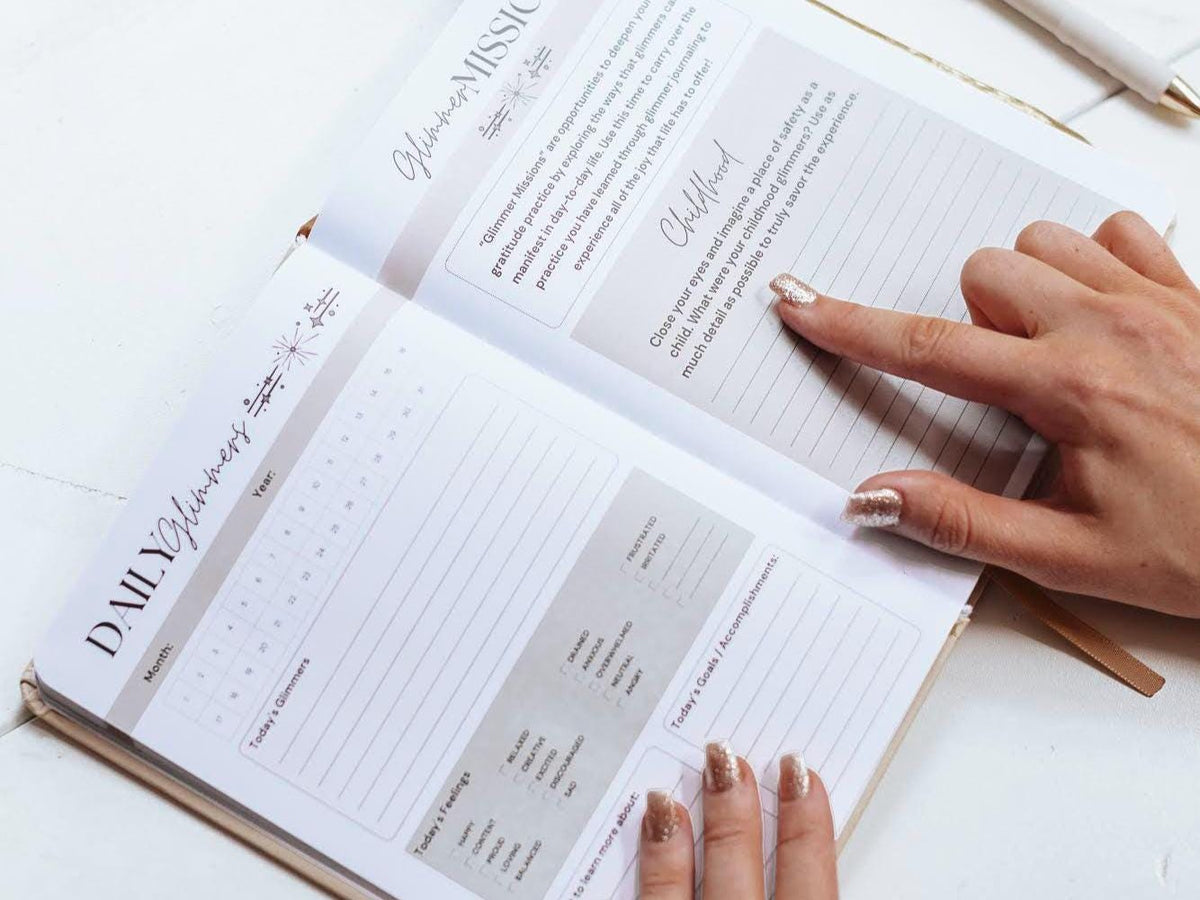 DAILY Glimmers
Month:
Year:
1 2 3 4 5 6 7 8 9 10 11 12 13 14 15 16
17 18 19 20 21 22 23 24 25 26 27 28 29 30 31
Today's Glimmers
Today's Feelings
HAPPY
CONTENT
PROUD
LOVING
BALANCED
RELAXED
CREATIVE
EXCITED
DISCOURAGED
SAD
DRAINED
ANXIOUS
OVERWHELMED
NEUTRAL
ANGRY
FRUSTRATED
IRRITATED
Today's Goals / Accomplishments:
to learn more about:
Glimmer
"Glimmer Missions" are opportunities to deepen your
gratitude practice by exploring the ways that glimmers
manifest in day-to-day life. Use this time to carry over the
practice you have learned through glimmer journaling to
experience all of the joy that life has to offer!
Childhood
Close your eyes and imagine a place of safety as a
child. What were your childhood glimmers? Use as
much detail as possible to truly savor the experience.